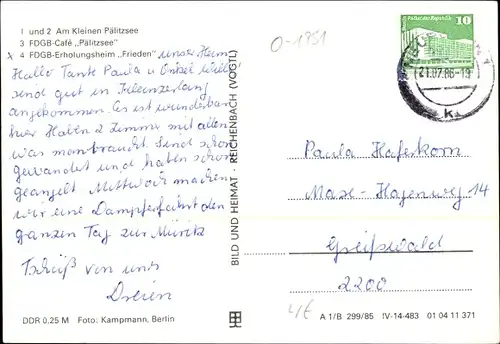 1 und 2 Am Kleinen Pälitzsee
3 FDGB-Café „Pälitzsee"
x 4 FDGB-Erholungsheim „Frieden" unser Heim
Hallo Tante Paula u. Onkel Willi
send gut in Kleenzerlang
angekommen. Es ist wunderbar
hier Haben 2 Zimmer mit allen
was man braucht. Sind schon
gewandert und haben schon
geangelt Mittwoch machen
wir eine Dampferfahrt den
ganzen Tag zur Müritz
Tschüß von uns
Dreien
DDR 0.25 M Foto: Kampmann, Berlin
BILD UND HEIMAT · REICHENBACH (VOGTL)
0-1951
Palast der Republik
10
21.07.86-19
Paula Haferkorn
Max-Hagenweg 14
Greifswald
2200
4€
A 1/B 299/85 IV-14-483 01 04 11 371